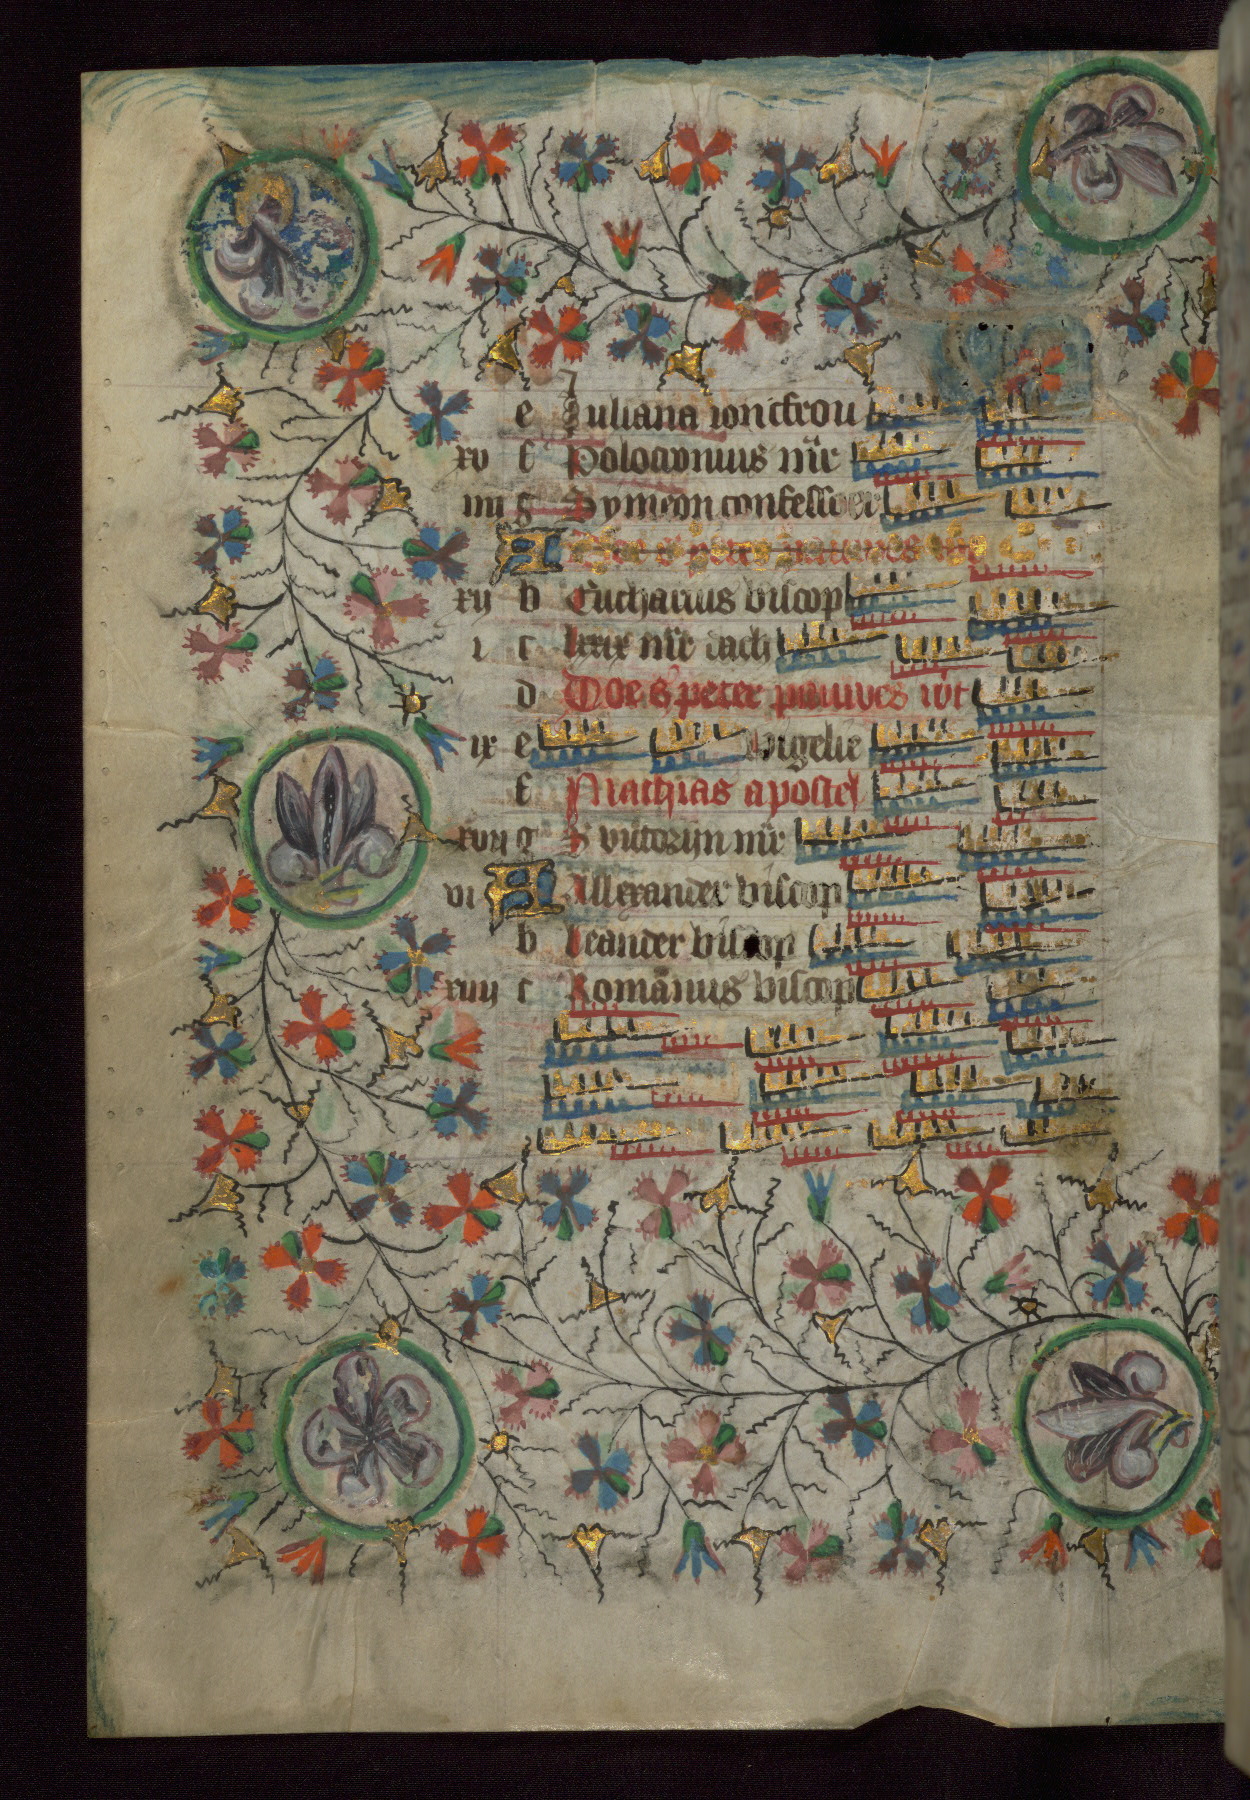 e Juliana ioncfrou
xv f Polocronius mr̄
iiii g Symeon confessoer
A
xii b Eucharius biscop
i c lxxix mr̄ dach
d Doe S peter
ix e Vigelie
f Mathias apostel
xvii g S victorijn mr̄
vi A Allexander biscop
b Leander biscop
xiiii c Romānus biscop